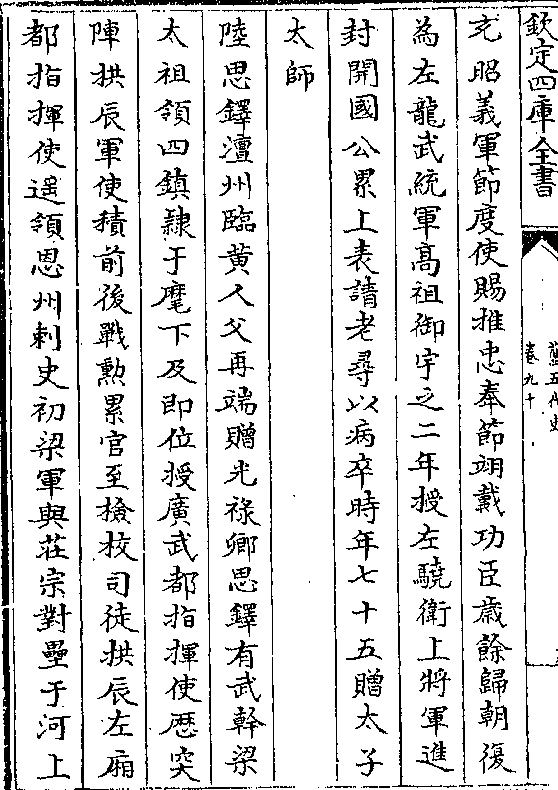 欽定四庫全書
舊五代史
卷九十
充昭義軍節度使賜推忠奉節翊戴功臣歲餘歸朝復
為左龍武統軍高祖御宇之二年授左驍衛上將軍進
封開國公累上表請老尋以病卒時年七十五贈太子
太師
陸思鐸澶州臨黄人父再端贈光祿卿思鐸有武幹梁
太祖領四鎮隸于麾下及即位授廣武都指揮使歴突
陣拱辰軍使積前後戰勲累官至檢校司徒拱辰左廂
都指揮使遥領恩州刺史初梁軍與莊宗對壘于河上